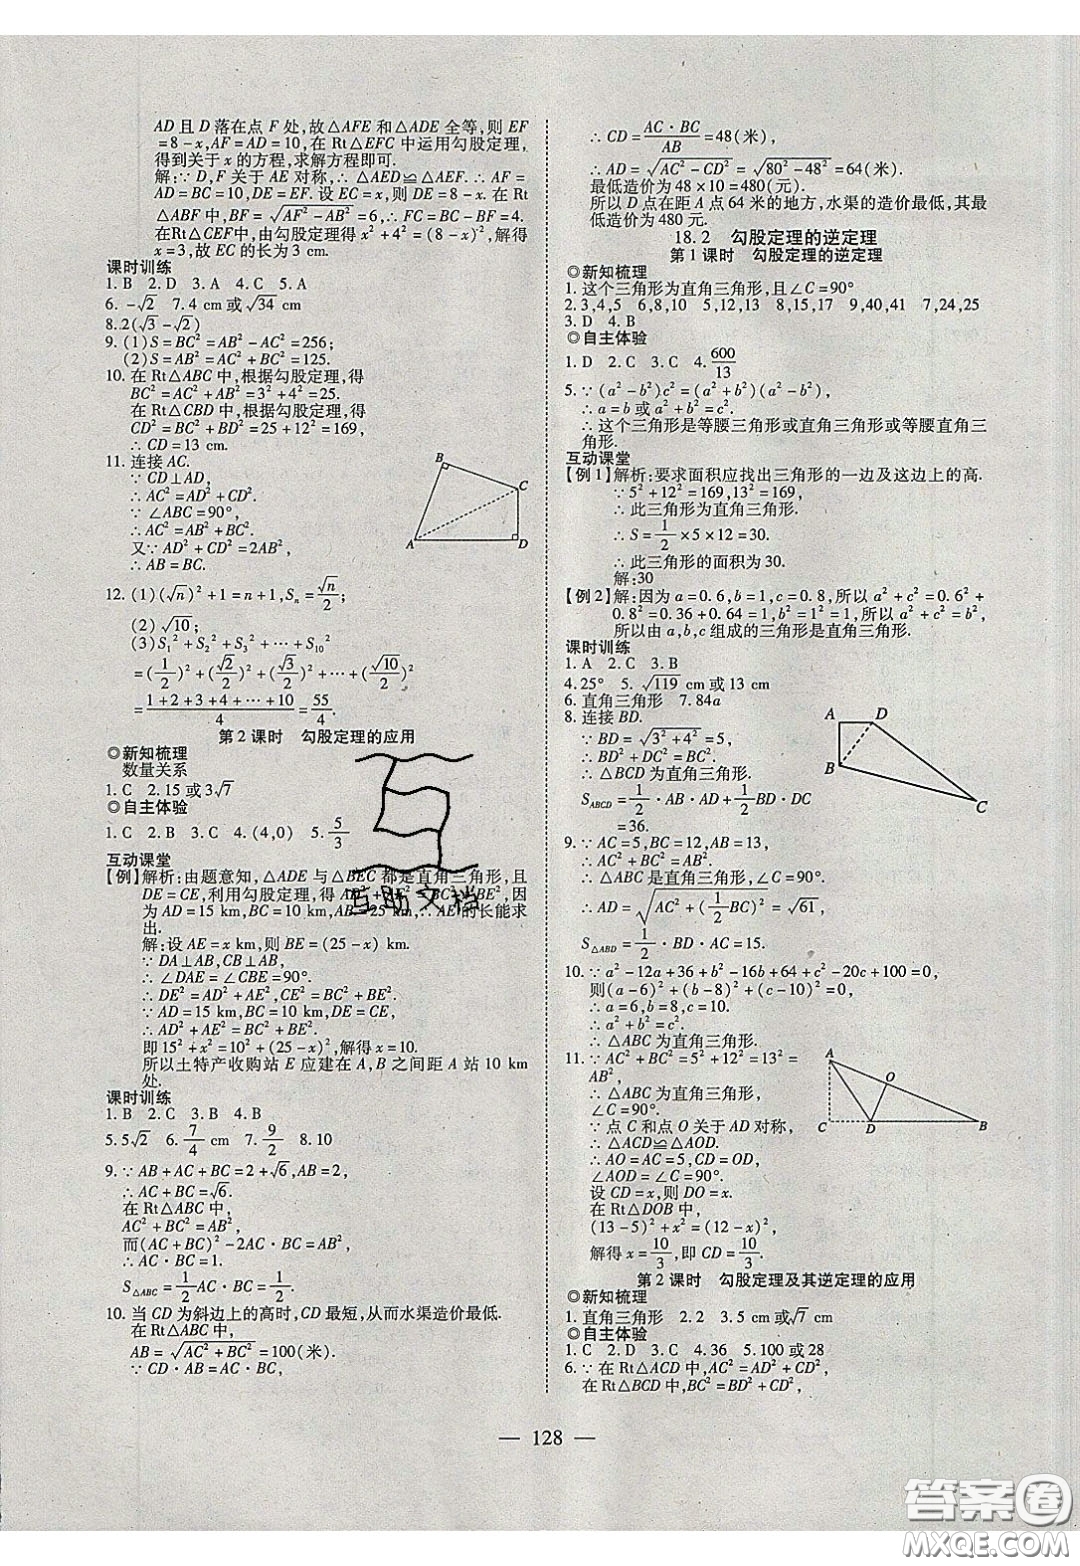 AD且D落在点F处,故△AFE和△ADE全等,则EF
=8-x,AF=AD=10,在Rt△EFC中运用勾股定理,
得到关于x的方程,求解方程即可.
解:∵D,F关于AE对称,∴△AED≌△AEF.∴AF=
AD=BC=10,DE=EF.设EC=x,则DE=8-x.在Rt
△ABF中,BF=√(AF²-AB²)=6,∴FC=BC-BF=4.
在Rt△CEF中,由勾股定理得x²+4²=(8-x)²,解得
x=3,故EC的长为3 cm.
课时训练
1.B 2.D 3.A 4.C 5.A
6.-√2 7.4 cm或√34 cm
8.2(√3-√2)
9.(1)S=BC²=AB²-AC²=256;
(2)S=AB²=AC²+BC²=125.
10.在Rt△ABC中,根据勾股定理,得
BC²=AC²+AB²=3²+4²=25.
在Rt△CBD中,根据勾股定理,得
CD²=BC²+BD²=25+12²=169,
∴CD=13 cm.
11.连接AC.
∵CD⊥AD,
∴AC²=AD²+CD².
∵∠ABC=90°,
∴AC²=AB²+BC².
又∵AD²+CD²=2AB²,
∴AB=BC.
B
C
A
D
12.(1)(√n)²+1=n+1,Sₙ=√n/2;
(2)√10;
(3)S₁²+S₂²+S₃²+…+S₁₀²
=(1/2)²+(√2/2)²+(√3/2)²+…+(√10/2)²
=(1+2+3+4+…+10)/4=55/4.
第2课时 勾股定理的应用
◎新知梳理
数量关系
1.C 2.15或3√7
◎自主体验
1.C 2.B 3.C 4.(4,0) 5.5/3
互动课堂
【例】解析:由题意知,△ADE与△BEC都是直角三角形,且
DE=CE,利用勾股定理,得AE²+AD²=BC²+BE²,因
为AD=15 km,BC=10 km,AB=25 km,∴AE的长能求
出.
解:设AE=x km,则BE=(25-x) km.
∵DA⊥AB,CB⊥AB,
∴∠DAE=∠CBE=90°.
∴DE²=AD²+AE²,CE²=BC²+BE².
∵AD=15 km,BC=10 km,DE=CE,
∴AD²+AE²=BC²+BE².
即15²+x²=10²+(25-x)²,解得x=10.
所以土特产收购站E应建在A,B之间距A站10 km
处.
课时训练
1.B 2.C 3.B 4.C
5.5√2 6.7/4 cm 7.9/2 8.10
9.∵AB+AC+BC=2+√6,AB=2,
∴AC+BC=√6.
在Rt△ABC中,
AC²+BC²=AB²,
而(AC+BC)²-2AC·BC=AB²,
∴AC·BC=1.
S△ABC=1/2AC·BC=1/2.
10.当CD为斜边上的高时,CD最短,从而水渠造价最低.
在Rt△ABC中,
AB=√(AC²+BC²)=100(米).
∵CD·AB=AC·BC,
∴CD=AC·BC/AB=48(米),
∴AD=√(AC²-CD²)=√(80²-48²)=64(米).
最低造价为48×10=480(元).
所以D点在距A点64米的地方,水渠的造价最低,其最
低造价为480元.
18.2 勾股定理的逆定理
第1课时 勾股定理的逆定理
◎新知梳理
1.这个三角形为直角三角形,且∠C=90°
2.3,4,5 6,8,10 5,12,13 8,15,17 9,40,41 7,24,25
3.D 4.B
◎自主体验
1.D 2.C 3.C 4.600/13
5.∵(a²-b²)c²=(a²+b²)(a²-b²),
∴a=b或a²+b²=c².
∴这个三角形是等腰三角形或直角三角形或等腰直角三
角形.
互动课堂
【例1】解析:要求面积应找出三角形的一边及这边上的高.
∵5²+12²=169,13²=169,
∴此三角形为直角三角形.
∴S=1/2×5×12=30.
∴此三角形的面积为30.
解:30
【例2】解:因为a=0.6,b=1,c=0.8,所以a²+c²=0.6²+
0.8²=0.36+0.64=1,b²=1²=1,所以a²+c²=b²,
所以由a,b,c组成的三角形是直角三角形.
课时训练
1.A 2.C 3.B
4.25° 5.√119 cm或13 cm
6.直角三角形 7.84a
8.连接BD.
∵BD=√(3²+4²)=5,
∴BD²+DC²=BC².
∴△BCD为直角三角形.
S_ABCD=1/2·AB·AD+1/2BD·DC
=36.
A
D
B
C
9.∵AC=5,BC=12,AB=13,
∴AC²+BC²=AB².
∴△ABC是直角三角形,∠C=90°.
∴AD=√(AC²+(1/2BC)²)=√61,
S△ABD=1/2·BD·AC=15.
10.∵a²-12a+36+b²-16b+64+c²-20c+100=0,
则(a-6)²+(b-8)²+(c-10)²=0,
∴a=6,b=8,c=10.
∴a²+b²=c².
∴△ABC为直角三角形.
11.∵AC²+BC²=5²+12²=13²=
AB²,
∴△ABC为直角三角形,
∠C=90°.
∵点C和点O关于AD对称,
∴△ACD≌△AOD.
∴AO=AC,CD=OD,
∠AOD=∠C=90°.
设CD=x,则DO=x.
在Rt△DOB中,
(13-5)²+x²=(12-x)²,
解得x=10/3,即CD=10/3.
A
O
C
D
B
第2课时 勾股定理及其逆定理的应用
◎新知梳理
1.直角三角形 2.2 3.5 cm或√7 cm
◎自主体验
1.C 2.D 3.C 4.36 5.100或28
6.∵在Rt△ACD中,AC²=AD²+CD²,
在Rt△BCD中,BC²=BD²+CD²,
— 128 —
互助文档
答案圈
MXQE.COM